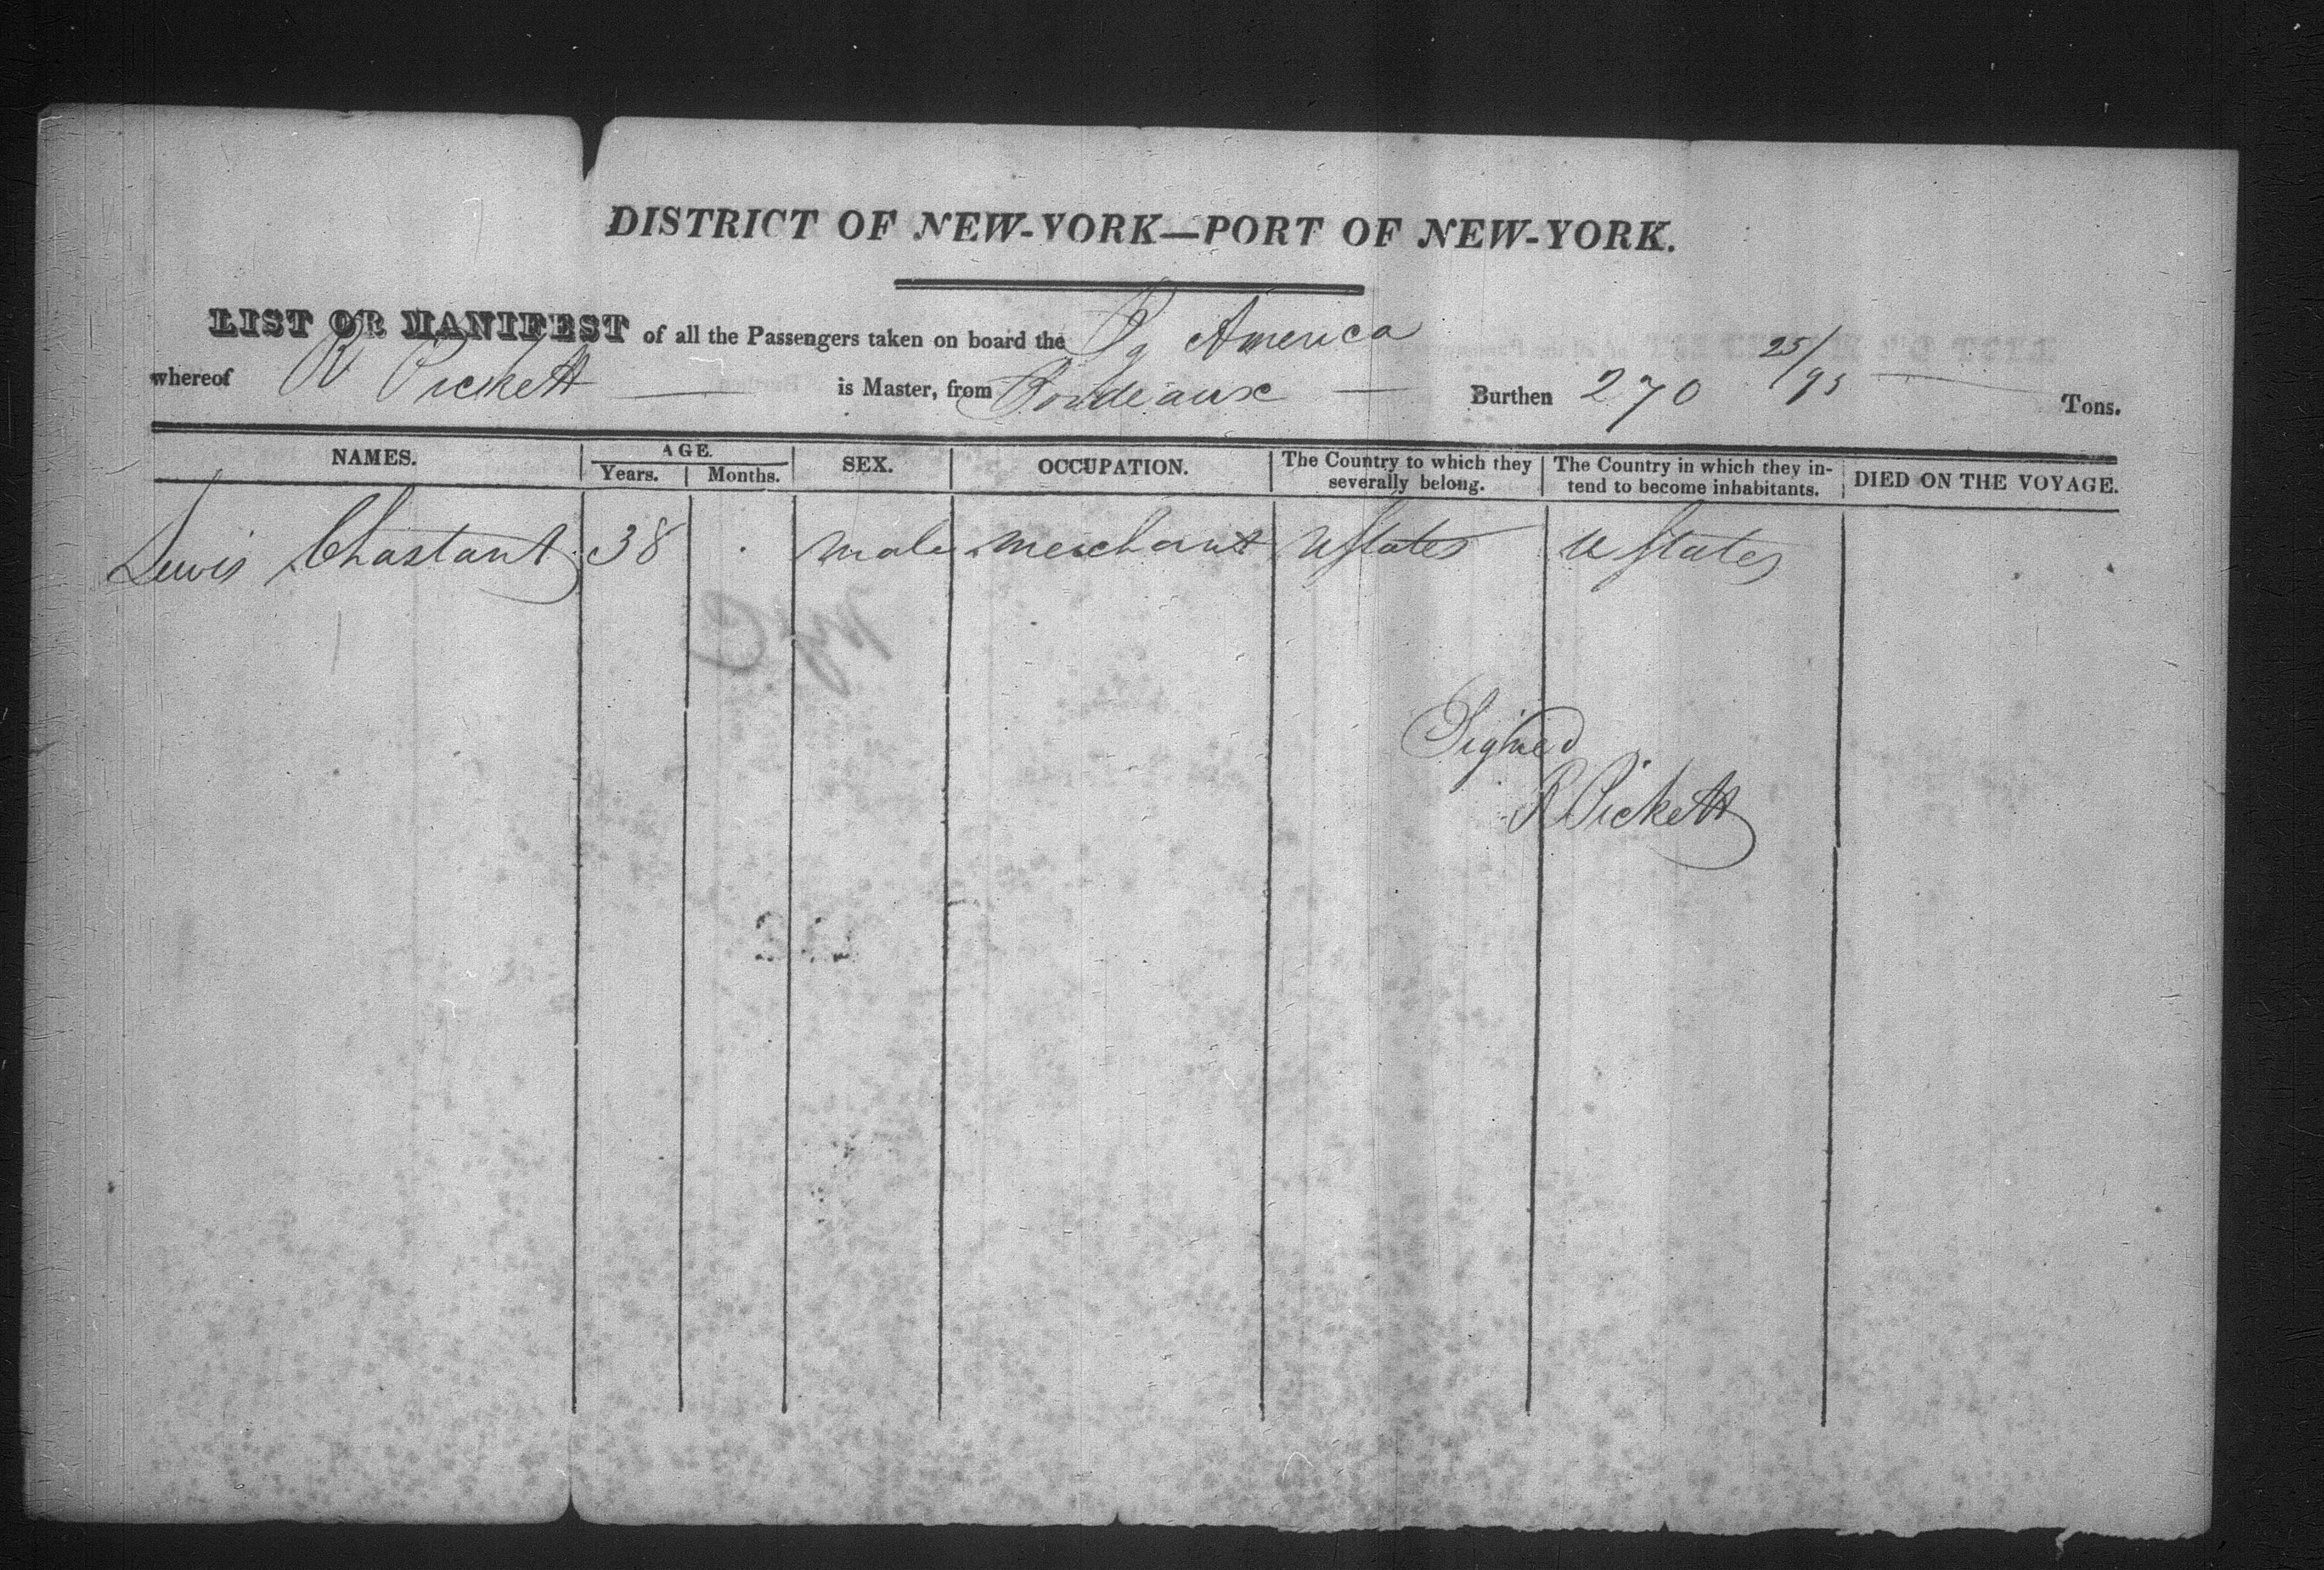 DISTRICT OF NEW-YORK—PORT OF NEW-YORK.
LIST OR MANIFEST of all the Passengers taken on board the Bg America
whereof R Pickett is Master, from Bordeaux Burthen 270 25/95 Tons.
NAMES. AGE. Years. Months. SEX. OCCUPATION. The Country to which they severally belong. The Country in which they intend to become inhabitants. DIED ON THE VOYAGE.
Lewis Chastant 38 male merchant U States U States
Signed
R Pickett